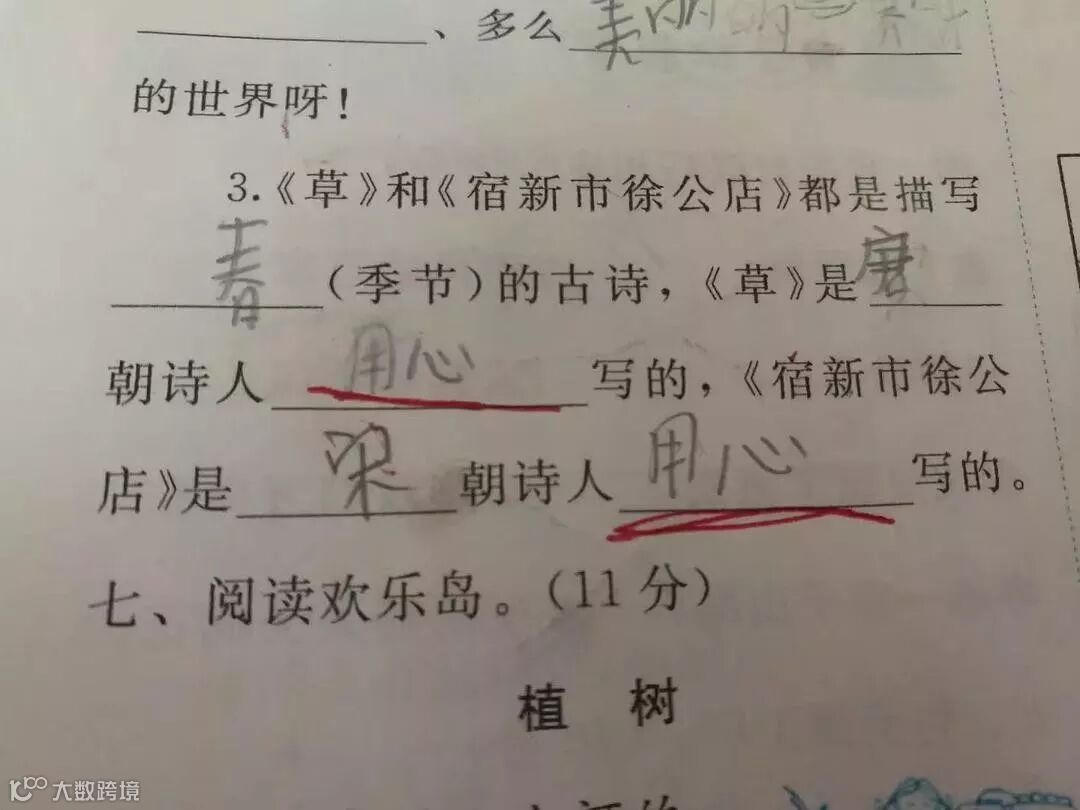 、多么 美丽的
的世界呀！
3.《草》和《宿新市徐公店》都是描写
春（季节）的古诗，《草》是唐
朝诗人 用心 写的，《宿新市徐公
店》是 梁 朝诗人 用心 写的。
七、阅读欢乐岛。（11分）
植 树
大数跨境